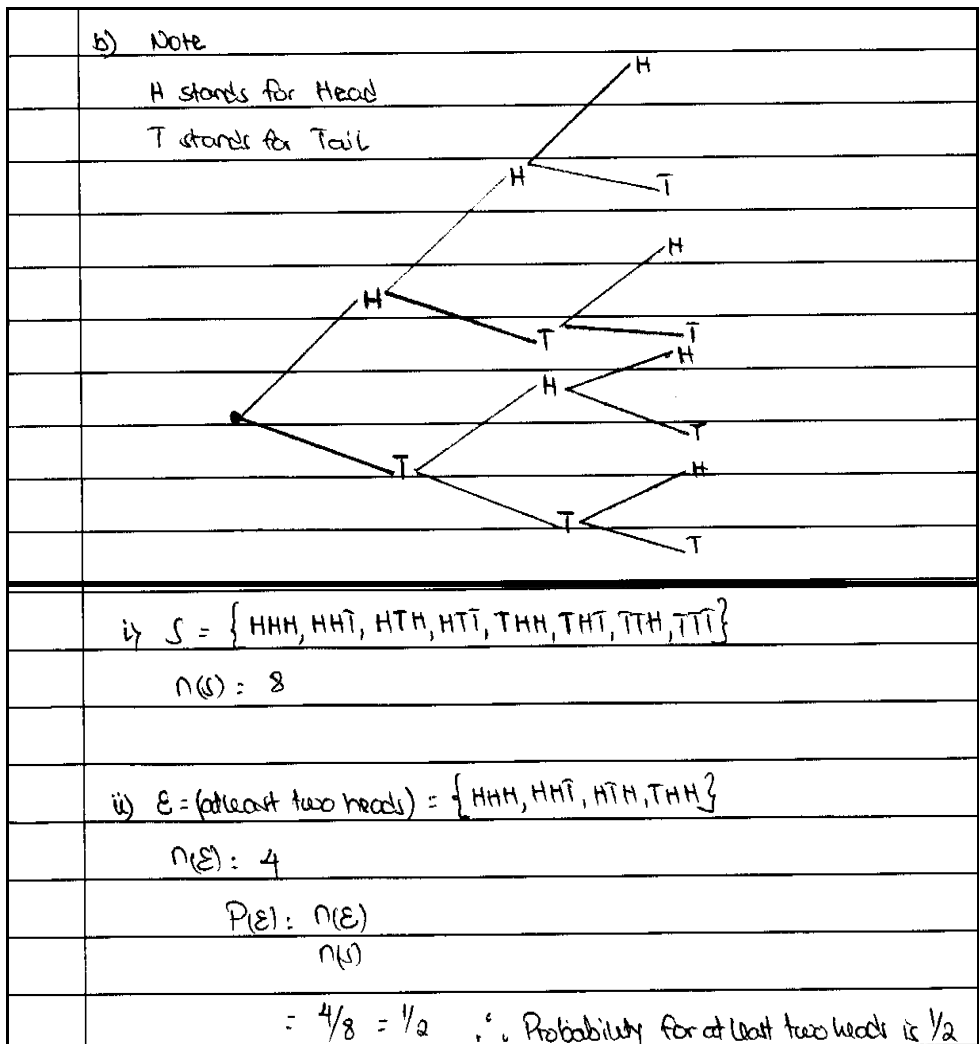 b) Note
H stands for Head
T stands for Tail
H
H
T
H
H
T
T
H
H
T
T
H
T
T
i) S = { HHH, HHT, HTH, HTT, THH, THT, TTH, TTT }
n(S) : 8
ii) E = (atleast two heads) = { HHH, HHT, HTH, THH }
n(E) : 4
P(E) : n(E)
n(S)
= 4/8 = 1/2 ∴ Probability for at least two heads is 1/2